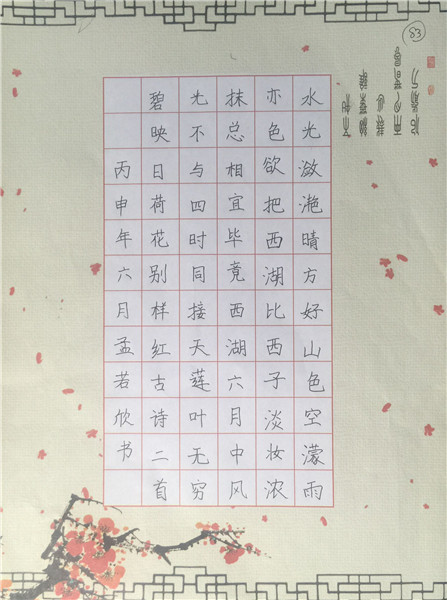 83
水光潋滟晴方好山色空濛雨
亦色欲把西湖比西子淡妆浓
抹总相宜毕竟西湖六月中风
光不与四时同接天莲叶无穷
碧映日荷花别样红古诗二首
丙申年六月孟若欣书